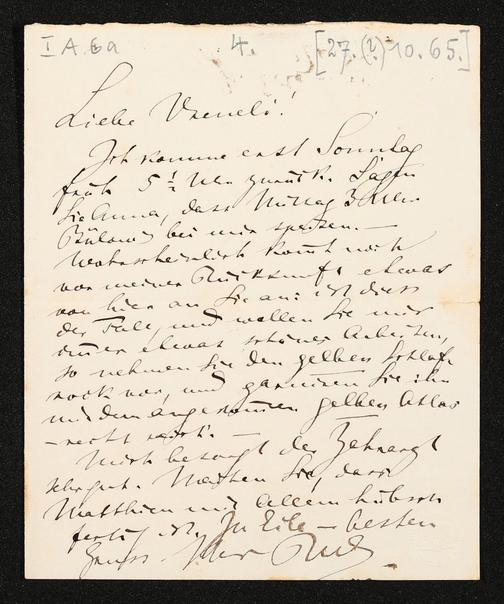 I A.6a 4. [27.(?)10.65.]
Liebe Vreneli!
Ich komme erst Sonntag
früh 5½ Uhr zurück. Sagen
Sie Anna, dass Mittag 3 Uhr
Bülow's bei mir speisen. —
Wahrscheinlich kommt noch
vor meiner Rückkunft etwas
von hier an Sie an: ist diess
der Fall, und wollen Sie mir
immer etwas schönes arbeiten,
so nehmen Sie den gelben Schlaf-
rock vor, und garniren Sie ihn
mit dem angekommenen gelben Atlas
— recht reich! —
Mich besorgt der Zahnarzt
sehr gut. Machen Sie, dass
Matthieu mit Allem hübsch
fertig ist. In Eile — besten
Gruss.